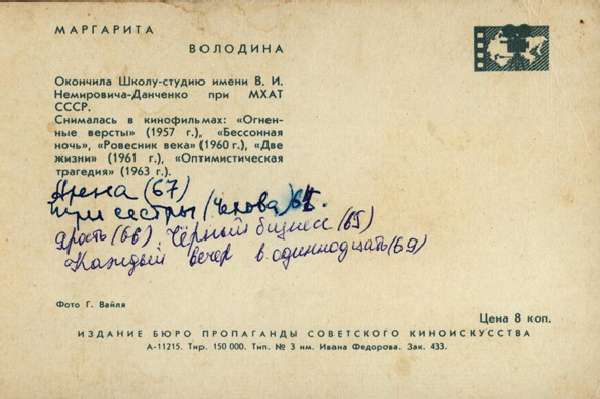 МАРГАРИТА
ВОЛОДИНА
Окончила Школу-студию имени В. И.
Немировича-Данченко при МХАТ
СССР.
Снималась в кинофильмах: «Огнен-
ные версты» (1957 г.), «Бессонная
ночь», «Ровесник века» (1960 г.), «Две
жизни» (1961 г.), «Оптимистическая
трагедия» (1963 г.).
Арена (67)
три сестры (Чехова)
Ярость (66), Чёрный бизнес (65)
Каждый вечер в одиннадцать (69)
Фото Г. Вайля
Цена 8 коп.
ИЗДАНИЕ БЮРО ПРОПАГАНДЫ СОВЕТСКОГО КИНОИСКУССТВА
А-11215. Тир. 150 000. Тип. № 3 им. Ивана Федорова. Зак. 433.